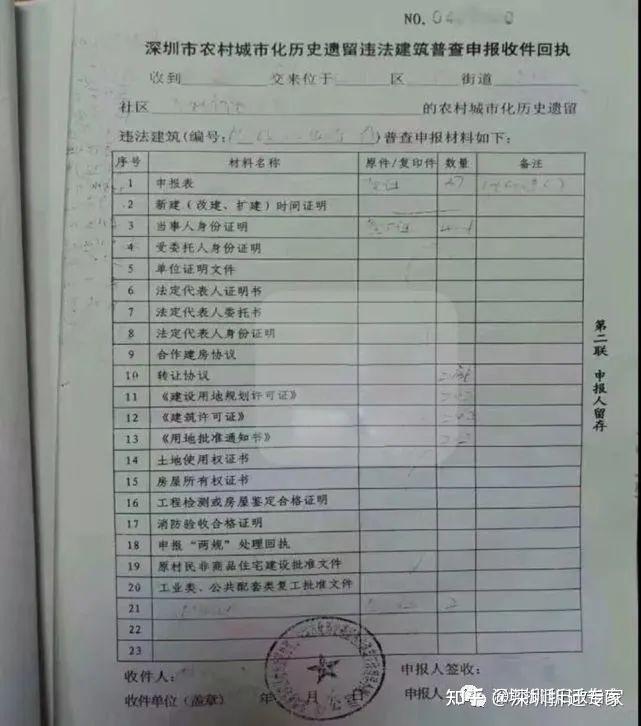 NO.
深圳市农村城市化历史遗留违法建筑普查申报收件回执
收到 交来位于 区 街道
社区 的农村城市化历史遗留
违法建筑(编号: )普查申报材料如下:
序号 材料名称 原件/复印件 数量 备注
1 申报表
2 新建(改建、扩建)时间证明
3 当事人身份证明
4 受委托人身份证明
5 单位证明文件
6 法定代表人证明书
7 法定代表人委托书
8 法定代表人身份证明
9 合作建房协议
10 转让协议
11 《建设用地规划许可证》
12 《建筑许可证》
13 《用地批准通知书》
14 土地使用权证书
15 房屋所有权证书
16 工程检测或房屋鉴定合格证明
17 消防验收合格证明
18 申报“两规”处理回执
19 原村民非商品住宅建设批准文件
20 工业类、公共配套类复工批准文件
21
22
23
第二联 申报人留存
收件人: 申报人签收:
收件单位(盖章) 年 月 申报人
知乎 @深圳旧改专家